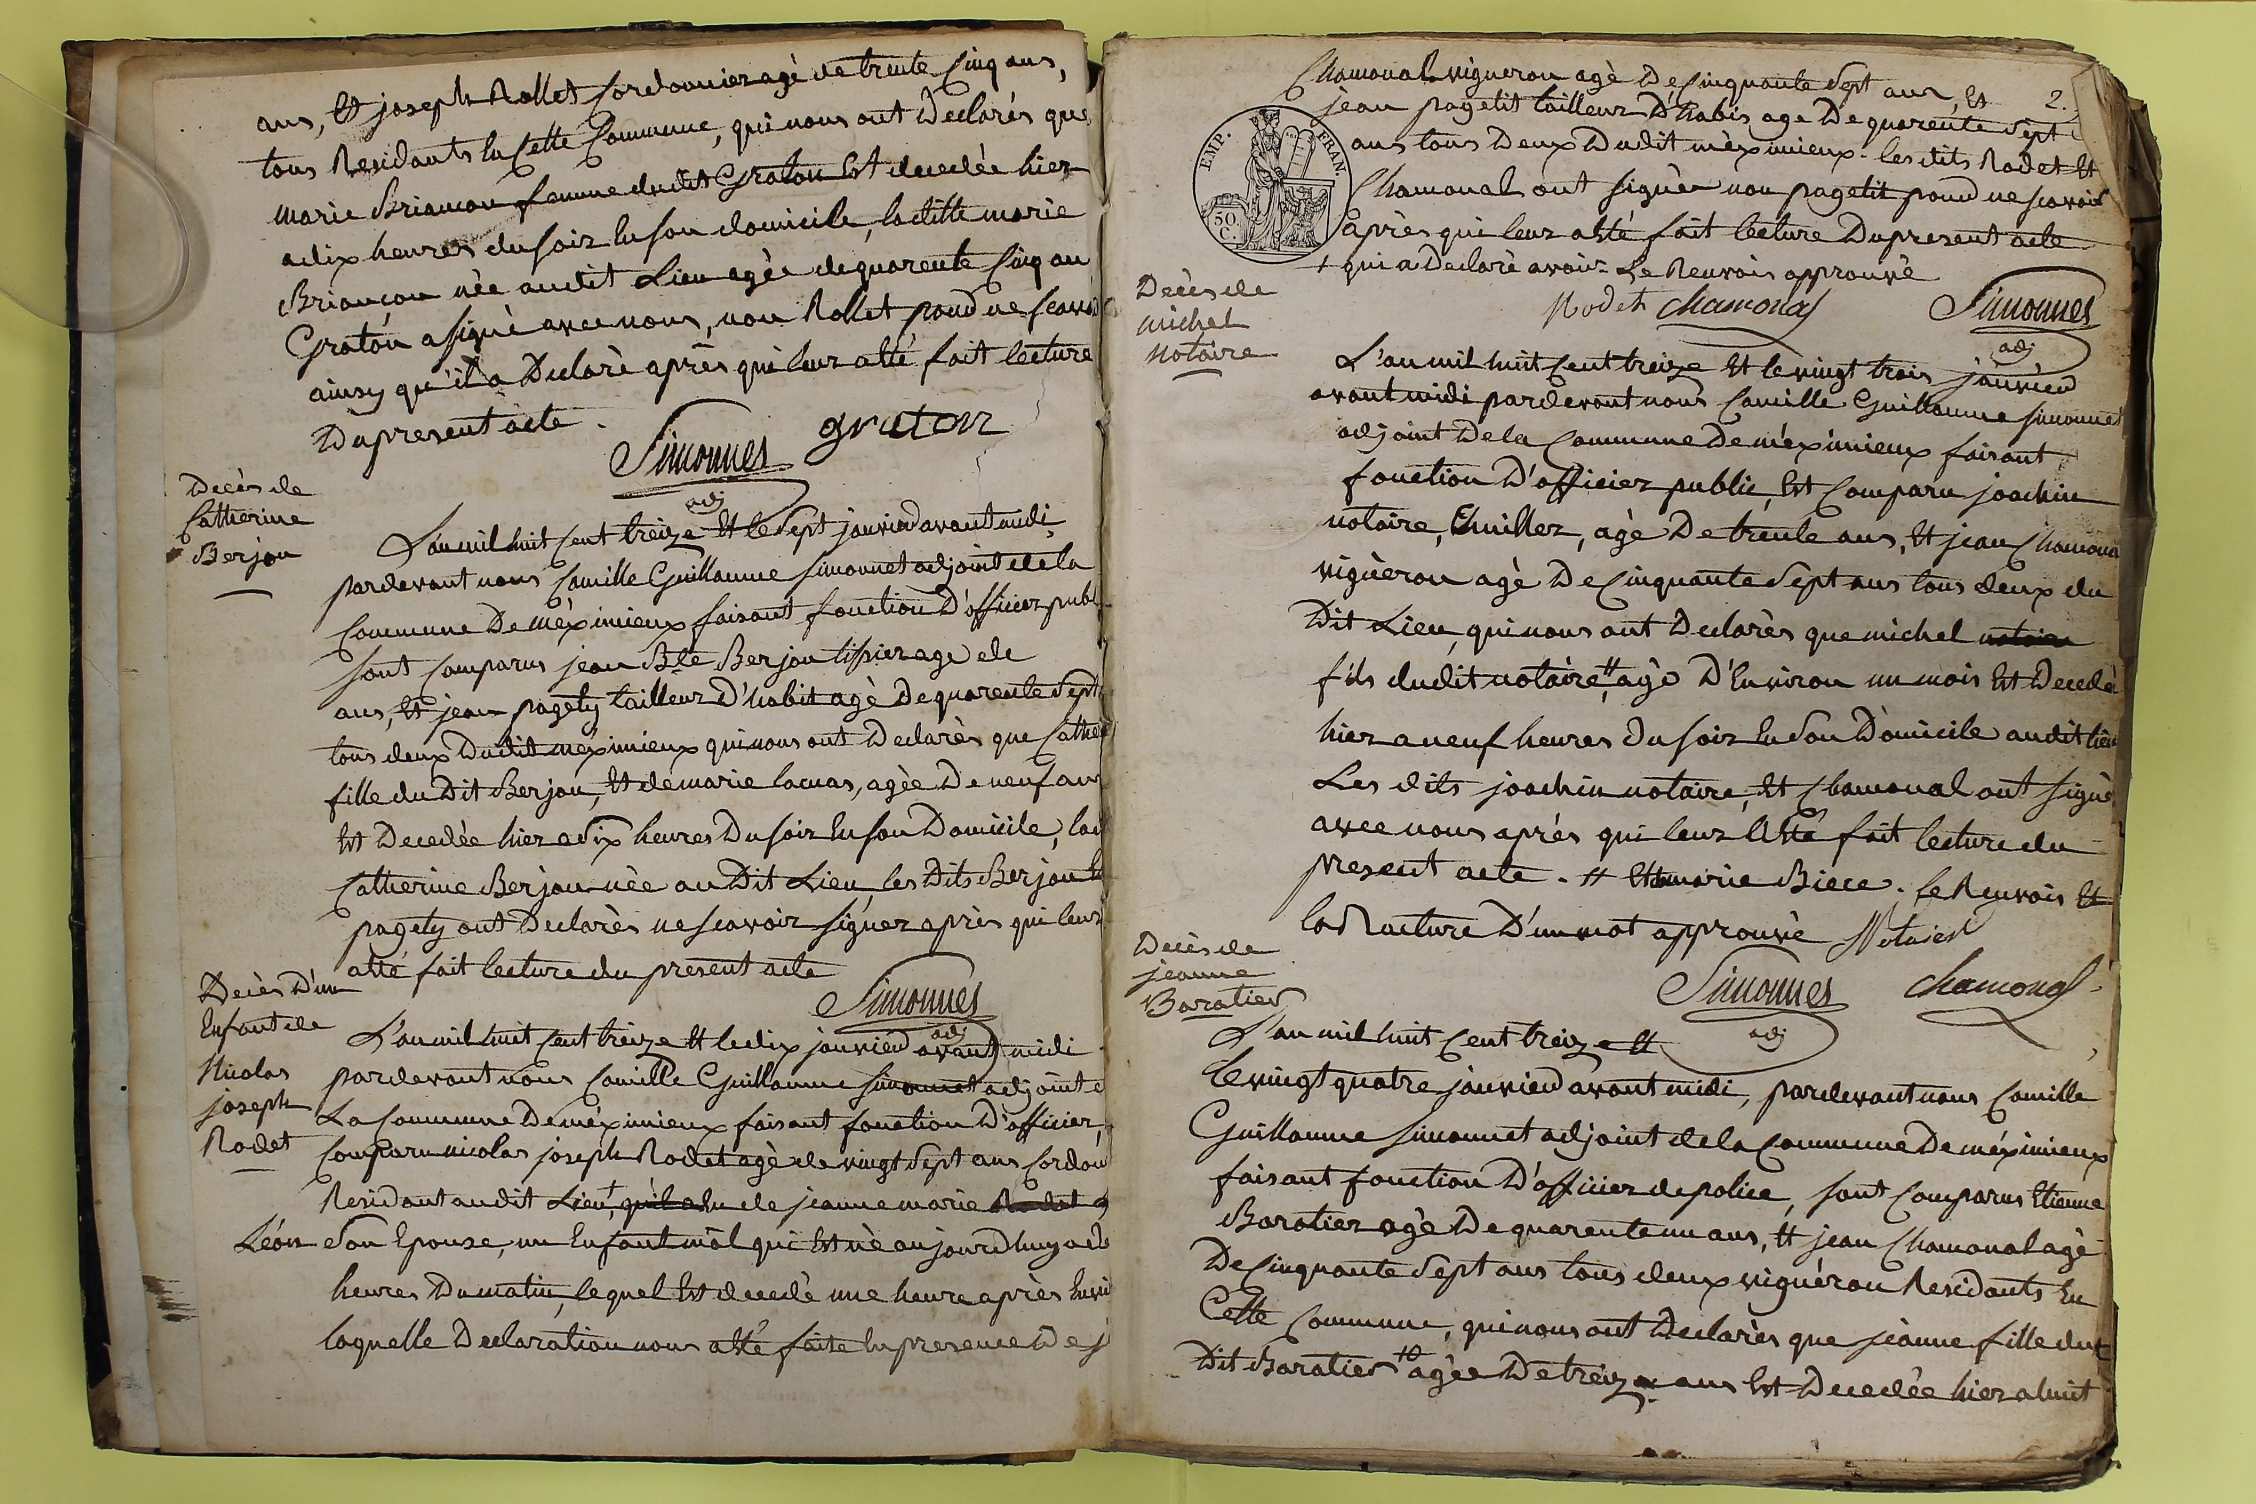 ans, Et joseph Rollet Cordonnier agè de trente Cinq ans,
tous Residants En Cette Commune, qui nous ont Declarés que
marie Briançon femme dudit Graton Est decedée hier
adix heures du soir En son domicile, laditte marie
Briançon née audit Lieu agée de quarente Cinq an
Graton a signé avec nous, non Rollet pour ne scavoi
ainsy qu'il a Declaré après qui leur a Eté fait lecture
Du present acte.
Simonnet adj graton
Decès de
Catherine
Berjon
L'an mil huit Cent treize Et le sept janvier avant midi
pardevant nous Camille Guillaume Simonnet adjoint de la
Commune De méximieux faisant fonction D'officier publ
sont Comparus jean Bte Berjon tissier age de
ans, Et jean pagety tailleur D'habit agé De quarente Sept
tous deux Dudit méximieux qui nous ont Declarés que Cathe
fille du Dit Berjon, Et de marie lacuas, agée De neuf ans
Est Decedée hier a Six heures Du soir En son Domicile, lad
Catherine Berjon née au Dit Lieu, les Dits Berjon Et
pagety ont Declarés ne scavoir signer après qui leur
a Eté fait lecture du present acte
Simonnet adj
Decès D'un
Enfant de
Nicolas
joseph
Rodet
L'an mil huit Cent treize Et le dix janvier avant midi
pardevant nous Camille Guillaume Simonnet adjoint d
La Commune De méximieux faisant fonction D'officier,
Comparu nicolas joseph Rodet agé de vingt Sept ans Cordon
Residant audit Lieu + qu'il a Eu de jeanne marie Rodet
Léon Son Epouse, un Enfant mâl qui Est né aujourdhuy a
heures Du matin, lequel Est decedé une heure après
laquelle Declaration nous a Eté faite En presence De j
2.
Chamonal vigneron agé De Cinquante Sept ans, Et
jean pagetit tailleur D'habis age De quarente Sept
ans tous Deux Dudit méximieux. les dits Rodet Et
Chamonal ont signér non pagetit pour ne scavoir
après qui leur a Eté fait lecture Du present acte
+ qui a Declaré avoir. Le Renvois approuvé
EMP. FRAN.
50 C.
Rodet chamonal Simonnet adj
Decès de
michel
Notaire
L'an mil huit Cent treize Et le vingt trois janvier
avant midi pardevant nous Camille Guillaume Simonnet
adjoint De la Commune De méximieux faisant
fonction D'officier public, Est Comparu joachin
notaire, huillier, agé De trente ans, Et jean Chamona
vignèron agé De Cinquante Sept ans tous deux du
Dit Lieu, qui nous ont Declarés que michel notaire
fils dudit notaire, # agé D'Environ un mois Est Decedé
hier a neuf heures Du soir En Son Domicile audit lieu
Les dits joachin notaire, Et Chamonal ont signé
avec nous après qui leur a Eté fait lecture du
present acte. # Et de marie Biece. le Renvois Et
la Racture D'un mot approuvé Notaire
Simonnet adj chamonal
Decès de
jeanne
Baratier
L'an mil huit Cent treize Et
le vingt quatre janvier avant midi, pardevant nous Camille
Guillaume Simonnet adjoint de la Commune De méximieux
faisant fonction D'officier de police, sont Comparus Etienne
Baratier agé De quarente un ans, Et jean Chamonal agé
De Cinquante Sept ans tous deux vignéron Residants En
Cette Commune, qui nous ont Declarés que jeanne fille du
Dit Baratier # agée De treize ans Est Decedée hier a huit